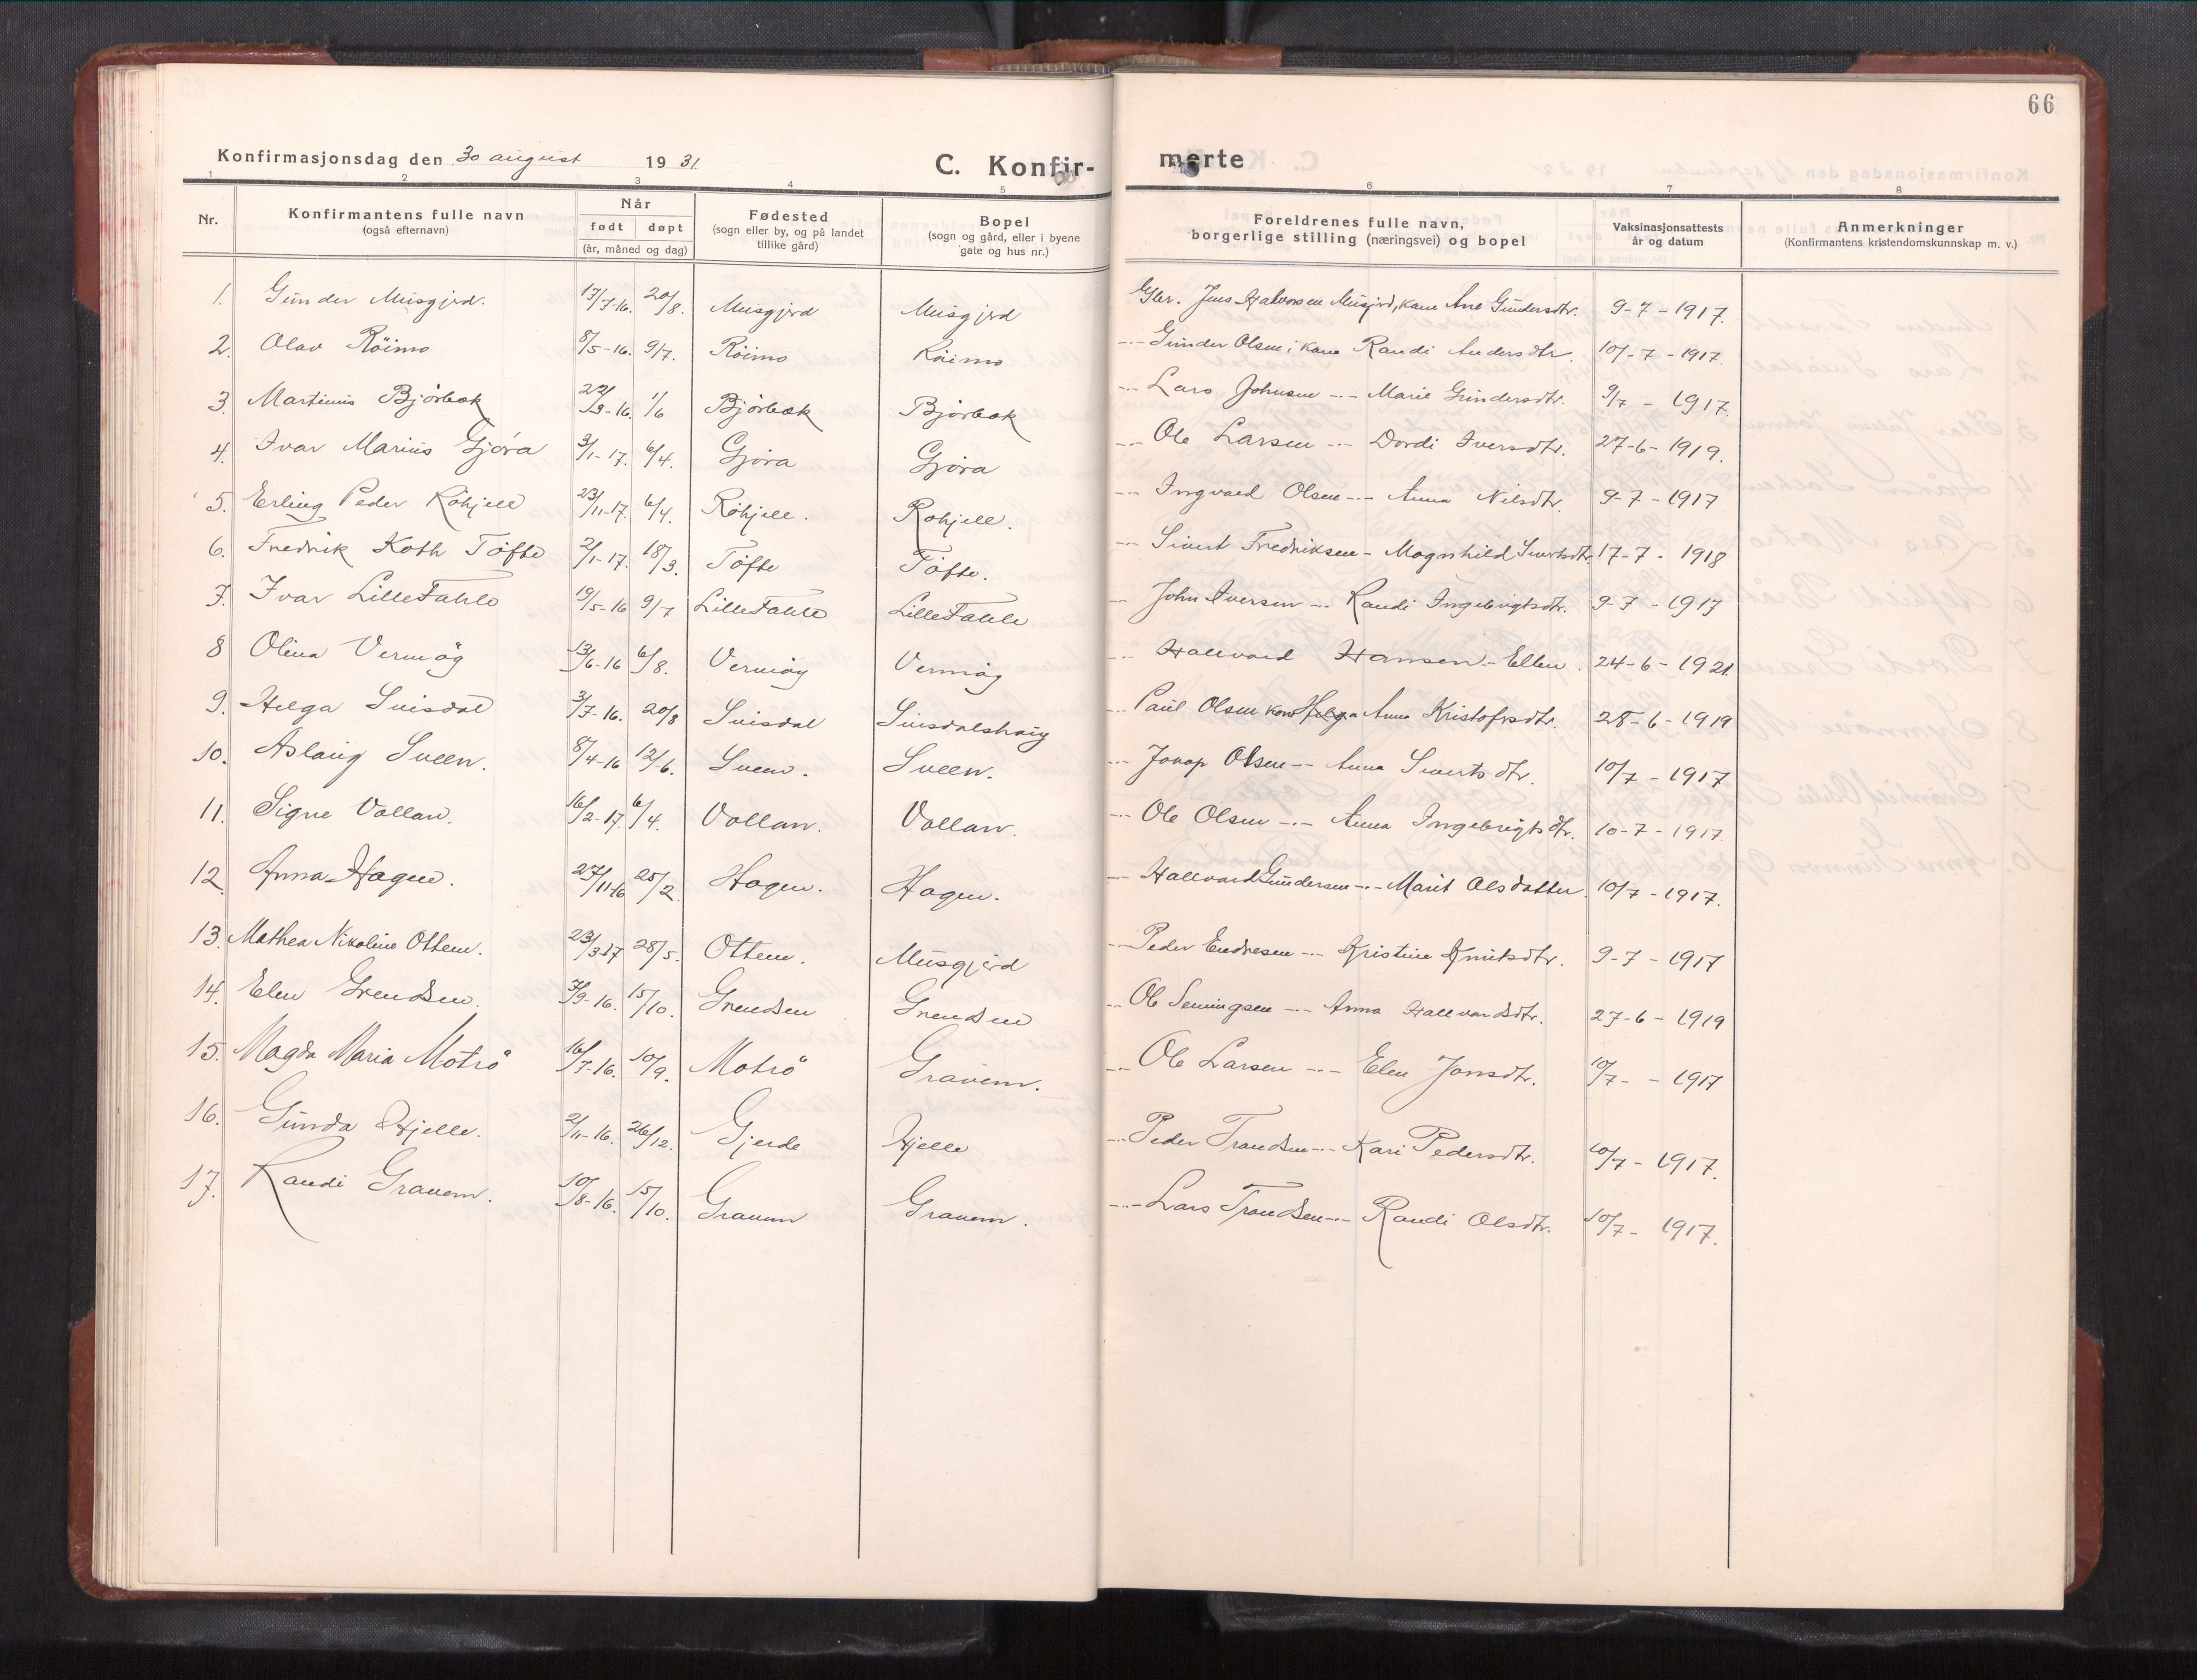 66
Konfirmasjonsdag den 30 august 1931. C. Konfir- merte
1 2 3 4 5 6 7 8
Nr. Konfirmantens fulle navn (også efternavn) Når født døpt (år, måned og dag) Fødested (sogn eller by, og på landet tillike gård) Bopel (sogn og gård, eller i byene gate og hus nr.) Foreldrenes fulle navn, borgerlige stilling (næringsvei) og bopel Vaksinasjonsattests år og datum Anmerkninger (Konfirmantens kristendomskunnskap m. v.)
1. Gunder Musgjerd. 17/7-16. 20/8. Musgjerd Musgjerd Gbr. Jens Halvorsen Musgjerd, kone Ane Gundersdtr. 9-7-1917.
2. Olav Röimo 8/5-16. 9/7. Röimo Röimo -"- Gunder Olsen i kone Randi Andersdtr. 10/-7-1917.
3. Martinus Bjørbæk 22/3-16. 1/6 Bjørbæk Bjørbæk -"- Lars Johnsen -"- Marie Gundersdtr. 9/7 - 1917.
4. Ivar Marius Gjøra 3/1-17. 6/4. Gjøra Gjøra -"- Ole Larsen -"- Dordi Iversdtr. 27-6-1919.
5. Erling Peder Röhjell 23/11-17. 6/4. Röhjell. Röhjell. -"- Ingvald Olsen -"- Anna Nilsdtr. 9-7-1917
6. Fredrik Koth Töfte 2/1-17. 18/3. Töfte Töfte. -"- Sivert Fredriksen - Magnhild Sivertsdtr. 17-7-1918
7. Ivar LilleFahle 19/5-16 9/7 LilleFahle LilleFahle -"- John Iversen -"- Randi Ingebrigtsdtr. 9-7-1917
8 Olina Vermøy 13/6-16 6/8. Vermøy Vermøy -"- Hallvard Hansen - Ellen. 24-6-1921.
9. Helga Svisdal 3/7-16. 20/8 Svisdal Svisdalshaug -"- Paul Olsen kone Helga Anna Kristofersdtr. 28-6-1919
10. Aslaug Sveen. 8/4-16 12/6. Sveen. Sveen. -"- Olsen -"- Anna Sivertsdtr. 10/7 - 1917
11. Signe Vollan. 16/2-17 6/4. Vollan. Vollan. -"- Ole Olsen -"- Anna Ingebrigtsdtr. 10-7-1917.
12. Anna Hagen. 27/11-16 25/2. Hagen. Hagen. -"- Hallvard Gundersen -"- Marit Olsdatter 10/7-1917.
13. Mathea Nikoline Ottem. 23/3-17 28/5. Ottem. Musgjerd -"- Peder Endresen -"- Kristine Knutsdtr. 9-7-1917
14. Elen Grensen. 3/9-16. 15/10. Grensen Grensen -"- Ole Semingsen -"- Anna Hallvardsdtr. 27-6-1919
15. Magda Maria Motrö 16/7-16. 10/9. Motrö Gravem. -"- Ole Larsen -"- Elen Jonsdtr. 10/7- - 1917
16. Gunda Hjelle. 2/11-16. 26/12. Gjerde Hjelle -"- Peder Trondsen -"- Kari Pedersdtr. 10/7 - 1917.
17. Randi Gravem. 10/8-16. 15/10. Gravem Gravem. -"- Lars Trondsen -"- Randi Olsdtr. 10/7 - 1917.